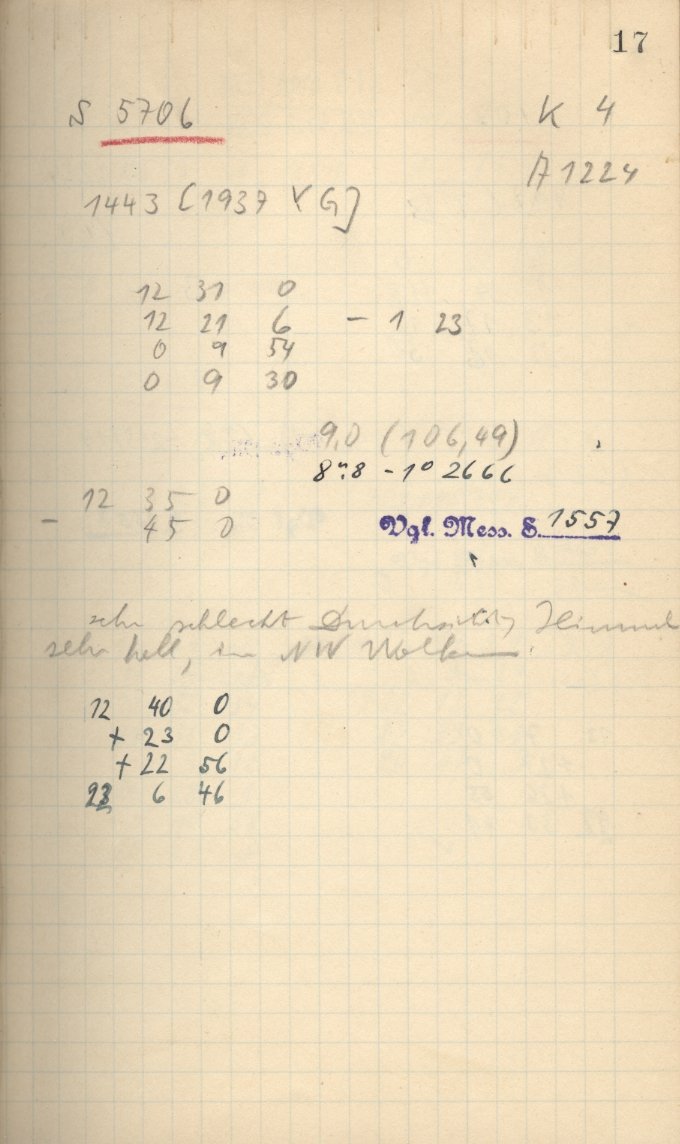 17
S 5706
K 4
A 1224
1443 [1937 YG]
12 31 0
12 21 6 - 1 23
0 9 54
0 9 30
9,0 (106,49)
8ᵐ.8 - 1° 2666
12 35 0
- 45 0
Vgl. Mess. S. 1557
sehr schlecht Durchsicht, Himmel
sehr hell, im NW Wolken.
12 40 0
+ 23 0
+ 22 56
6 46